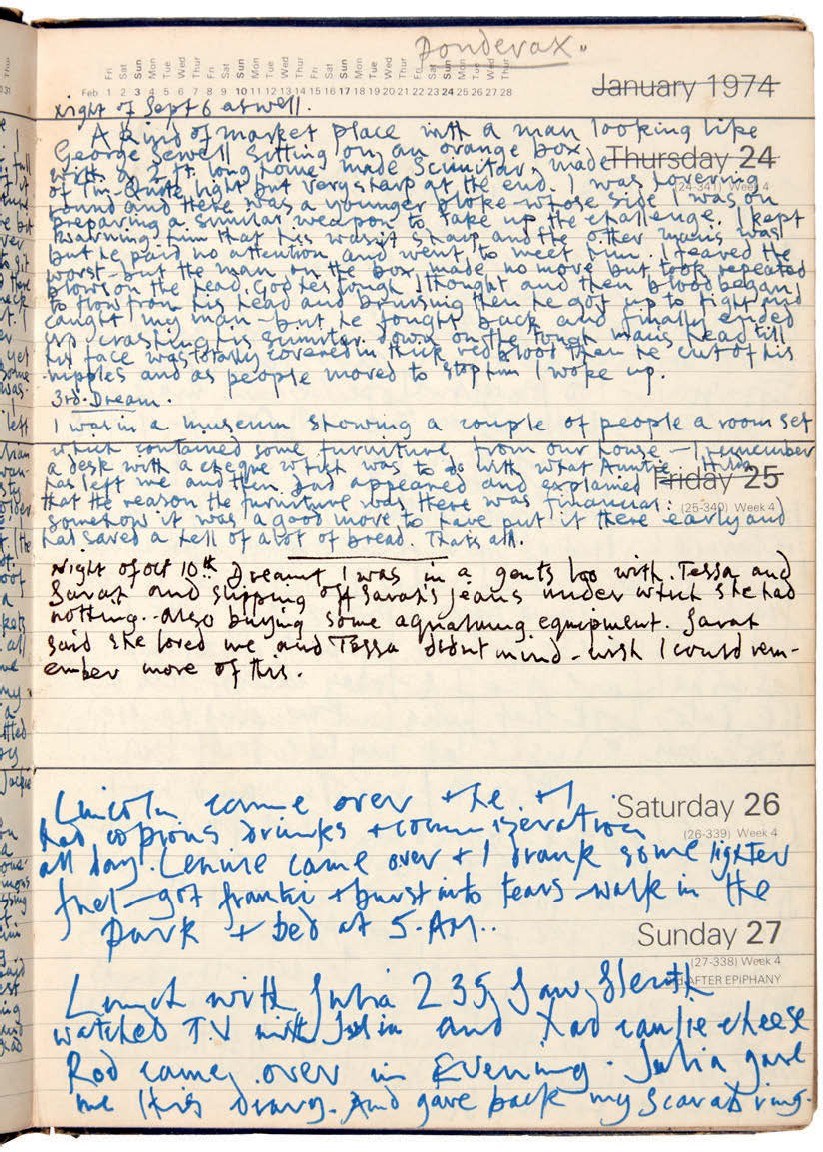 Ponderax.
Fri Sat Sun Mon Tue Wed Thur Fri Sat Sun Mon Tue Wed Thur Fri Sat Sun Mon Tue Wed Thur Fri Sat Sun Mon Tue Wed Thur
Feb 1 2 3 4 5 6 7 8 9 10 11 12 13 14 15 16 17 18 19 20 21 22 23 24 25 26 27 28
January 1974
Night of Sept 6 as well.
A kind of market place with a man looking like
George Sewell sitting on an orange box
Thursday 24
with a 2 ft. long home made Scimitar, made
(24-341) Week 4
of tin. Quite light but very sharp at the end. I was hovering
round and there was a younger bloke whose side I was on
preparing a similar weapon to take up the challenge. I kept
warning him that his wasn't sharp and the other man's was
but he paid no attention and went to meet him. I feared the
worst - but the man on the box made no move but took repeated
blows on the head. God he's tough I thought and then blood began
to flow from his head and bruising then he got up to fight and
caught my man - but he fought back and finally ended
up crashing his scimitar down on the tough man's head till
his face was totally covered in thick red blood then he cut off his
nipples and as people moved to stop him I woke up.
3rd. Dream.
I was in a museum showing a couple of people a room set
which contained some furniture from our house - I remember
a desk with a cheque which was to do with what Auntie Hilda
Friday 25
has left me and then Dad appeared and explained
that the reason the furniture was there was financial:
(25-340) Week 4
somehow it was a good move to have put it there early and
had saved a hell of a lot of bread. Thats all.
Night of Oct 10th Dreamt I was in a gents loo with Tessa and
Sarah and slipping off Sarah's jeans under which she had
nothing.. also buying some equipment. Sarah
said she loved me and Tessa didn't mind - wish I could rem-
ember more of this.
Saturday 26
Lincoln came over + he + I
had copious drinks + commiseration
(26-339) Week 4
all day. Lennie came over + I drank some lighter
fuel - got frantic + burst into tears - walk in the
park + bed at 5. AM..
Sunday 27
(27-338) Week 4
AFTER EPIPHANY
Lunch with Julia 235, Saw Sleuth
watched T.V with Julia and had caulie cheese
Rod came over in Evening. Julia gave
me this diary. And gave back my Scarab ring.